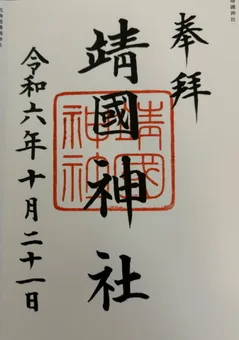 奉拝
靖國神社
靖國
神社
令和六年十月二十一日